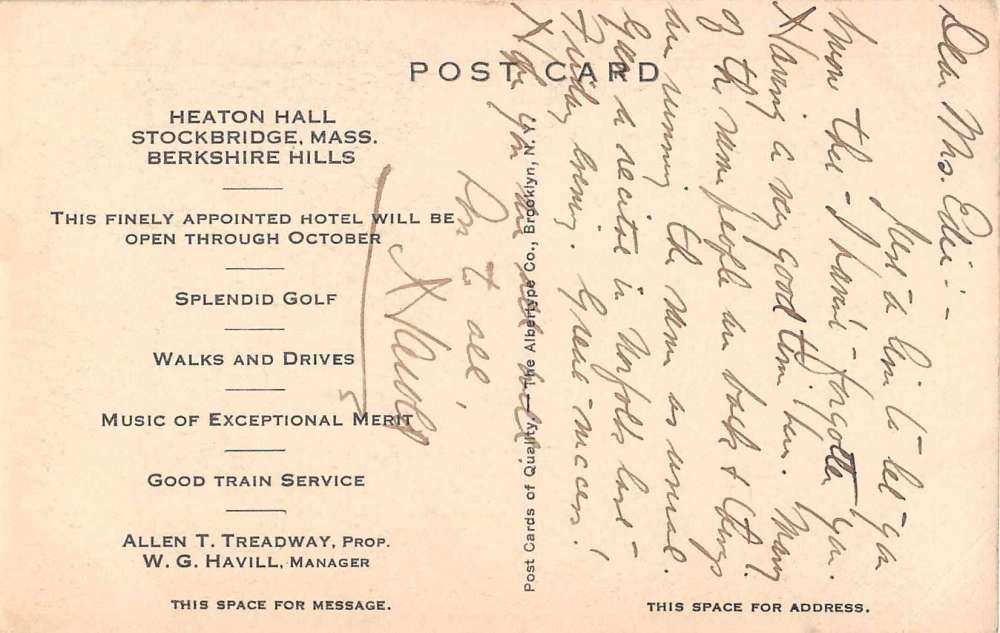 POST CARD
HEATON HALL
STOCKBRIDGE, MASS.
BERKSHIRE HILLS
THIS FINELY APPOINTED HOTEL WILL BE
OPEN THROUGH OCTOBER
SPLENDID GOLF
WALKS AND DRIVES
MUSIC OF EXCEPTIONAL MERIT
GOOD TRAIN SERVICE
ALLEN T. TREADWAY, PROP.
W. G. HAVILL, MANAGER
THIS SPACE FOR MESSAGE.
Post Cards of Quality.—The Albertype Co., Brooklyn, N. Y.
THIS SPACE FOR ADDRESS.
Dear Mrs. :-
Just a line to let you
know that I haven't forgotten you.
Having a very good time here. Many
of the same people are back & things
are running the same as usual.
Gave a recital in Norfolk last
Friday evening. Great success!
Hope you are all well.
Love to all,